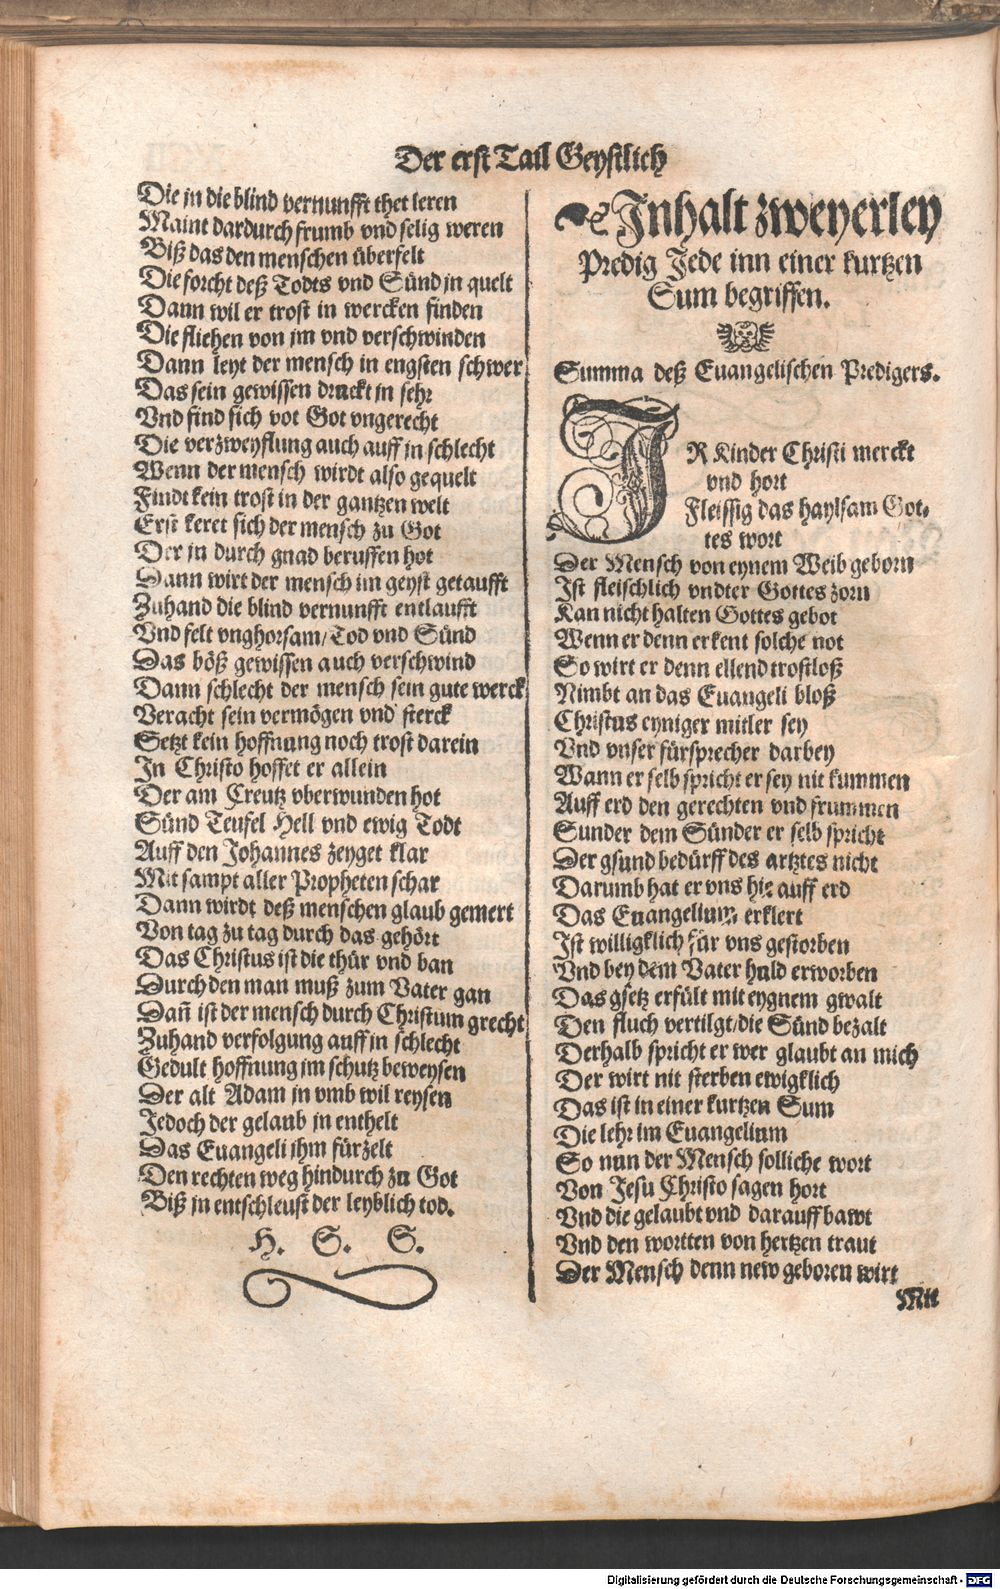 Der erst Tail Geystlich
Die jn die blind vernunfft thet leren
Maint dardurch frumb vnd selig weren
Biß das den menschen überfelt
Die forcht deß Todts vnd Sünd jn quelt
Dann wil er trost in wercken finden
Die fliehen von jm vnd verschwinden
Dann leyt der mensch in engsten schwer
Das sein gewissen druckt jn sehr
Vnd find sich vot Got vngerecht
Die verzweyflung auch auff jn schlecht
Wenn der mensch wirdt also gequelt
Findt kein trost in der gantzen welt
Erst keret sich der mensch zu Got
Der jn durch gnad beruffen hot
Dann wirt der mensch im geyst getaufft
Zuhand die blind vernunfft entlaufft
Vnd felt vnghorsam/ Tod vnd Sünd
Das böß gewissen auch verschwind
Dann schlecht der mensch sein gute werck
Veracht sein vermögen vnd sterck
Setzt kein hoffnung noch trost darein
In Christo hoffet er allein
Der am Creutz vberwunden hot
Sünd Teufel Hell vnd ewig Todt
Auff den Johannes zeyget klar
Mit sampt aller Propheten schar
Dann wirdt deß menschen glaub gemert
Von tag zu tag durch das gehört
Das Christus ist die thür vnd ban
Durch den man muß zum Vater gan
Dañ ist der mensch durch Christum grecht
Zuhand verfolgung auff jn schlecht
Gedult hoffnung jm schutz beweysen
Der alt Adam jn vmb wil reysen
Jedoch der gelaub jn enthelt
Das Euangeli jhm fürzelt
Den rechten weg hindurch zu Got
Biß jn entschleust der leyblich tod.
H. S. S.
Inhalt zweyerley
Predig Jede inn einer kurtzen
Sum begriffen.
Summa deß Euangelischen Predigers.
IR Kinder Christi merckt
vnd hort
Fleissig das haylsam Got-
tes wort
Der Mensch von eynem Weib geborn
Ist fleischlich vndter Gottes zorn
Kan nicht halten Gottes gebot
Wenn er denn erkent solche not
So wirt er denn ellend trostloß
Nimbt an das Euangeli bloß
Christus eyniger mitler sey
Vnd vnser fürsprecher darbey
Wann er selb spricht er sey nit kummen
Auff erd den gerechten vnd frummen
Sunder dem Sünder er selb spricht
Der gsund bedürff des artztes nicht
Darumb hat er vns hie auff erd
Das Euangelium erklert
Ist willigklich für vns gestorben
Vnd bey dem Vater huld erworben
Das gsetz erfült mit eygnem gwalt
Den fluch vertilgt/die Sünd bezalt
Derhalb spricht er wer glaubt an mich
Der wirt nit sterben ewigklich
Das ist in einer kurtzen Sum
Die lehr im Euangelium
So nun der Mensch solliche wort
Von Jesu Christo sagen hort
Vnd die gelaubt vnd darauff bawt
Vnd den wortten von hertzen traut
Der Mensch denn new geboren wirt
Mit
Digitalisierung gefördert durch die Deutsche Forschungsgemeinschaft - DFG